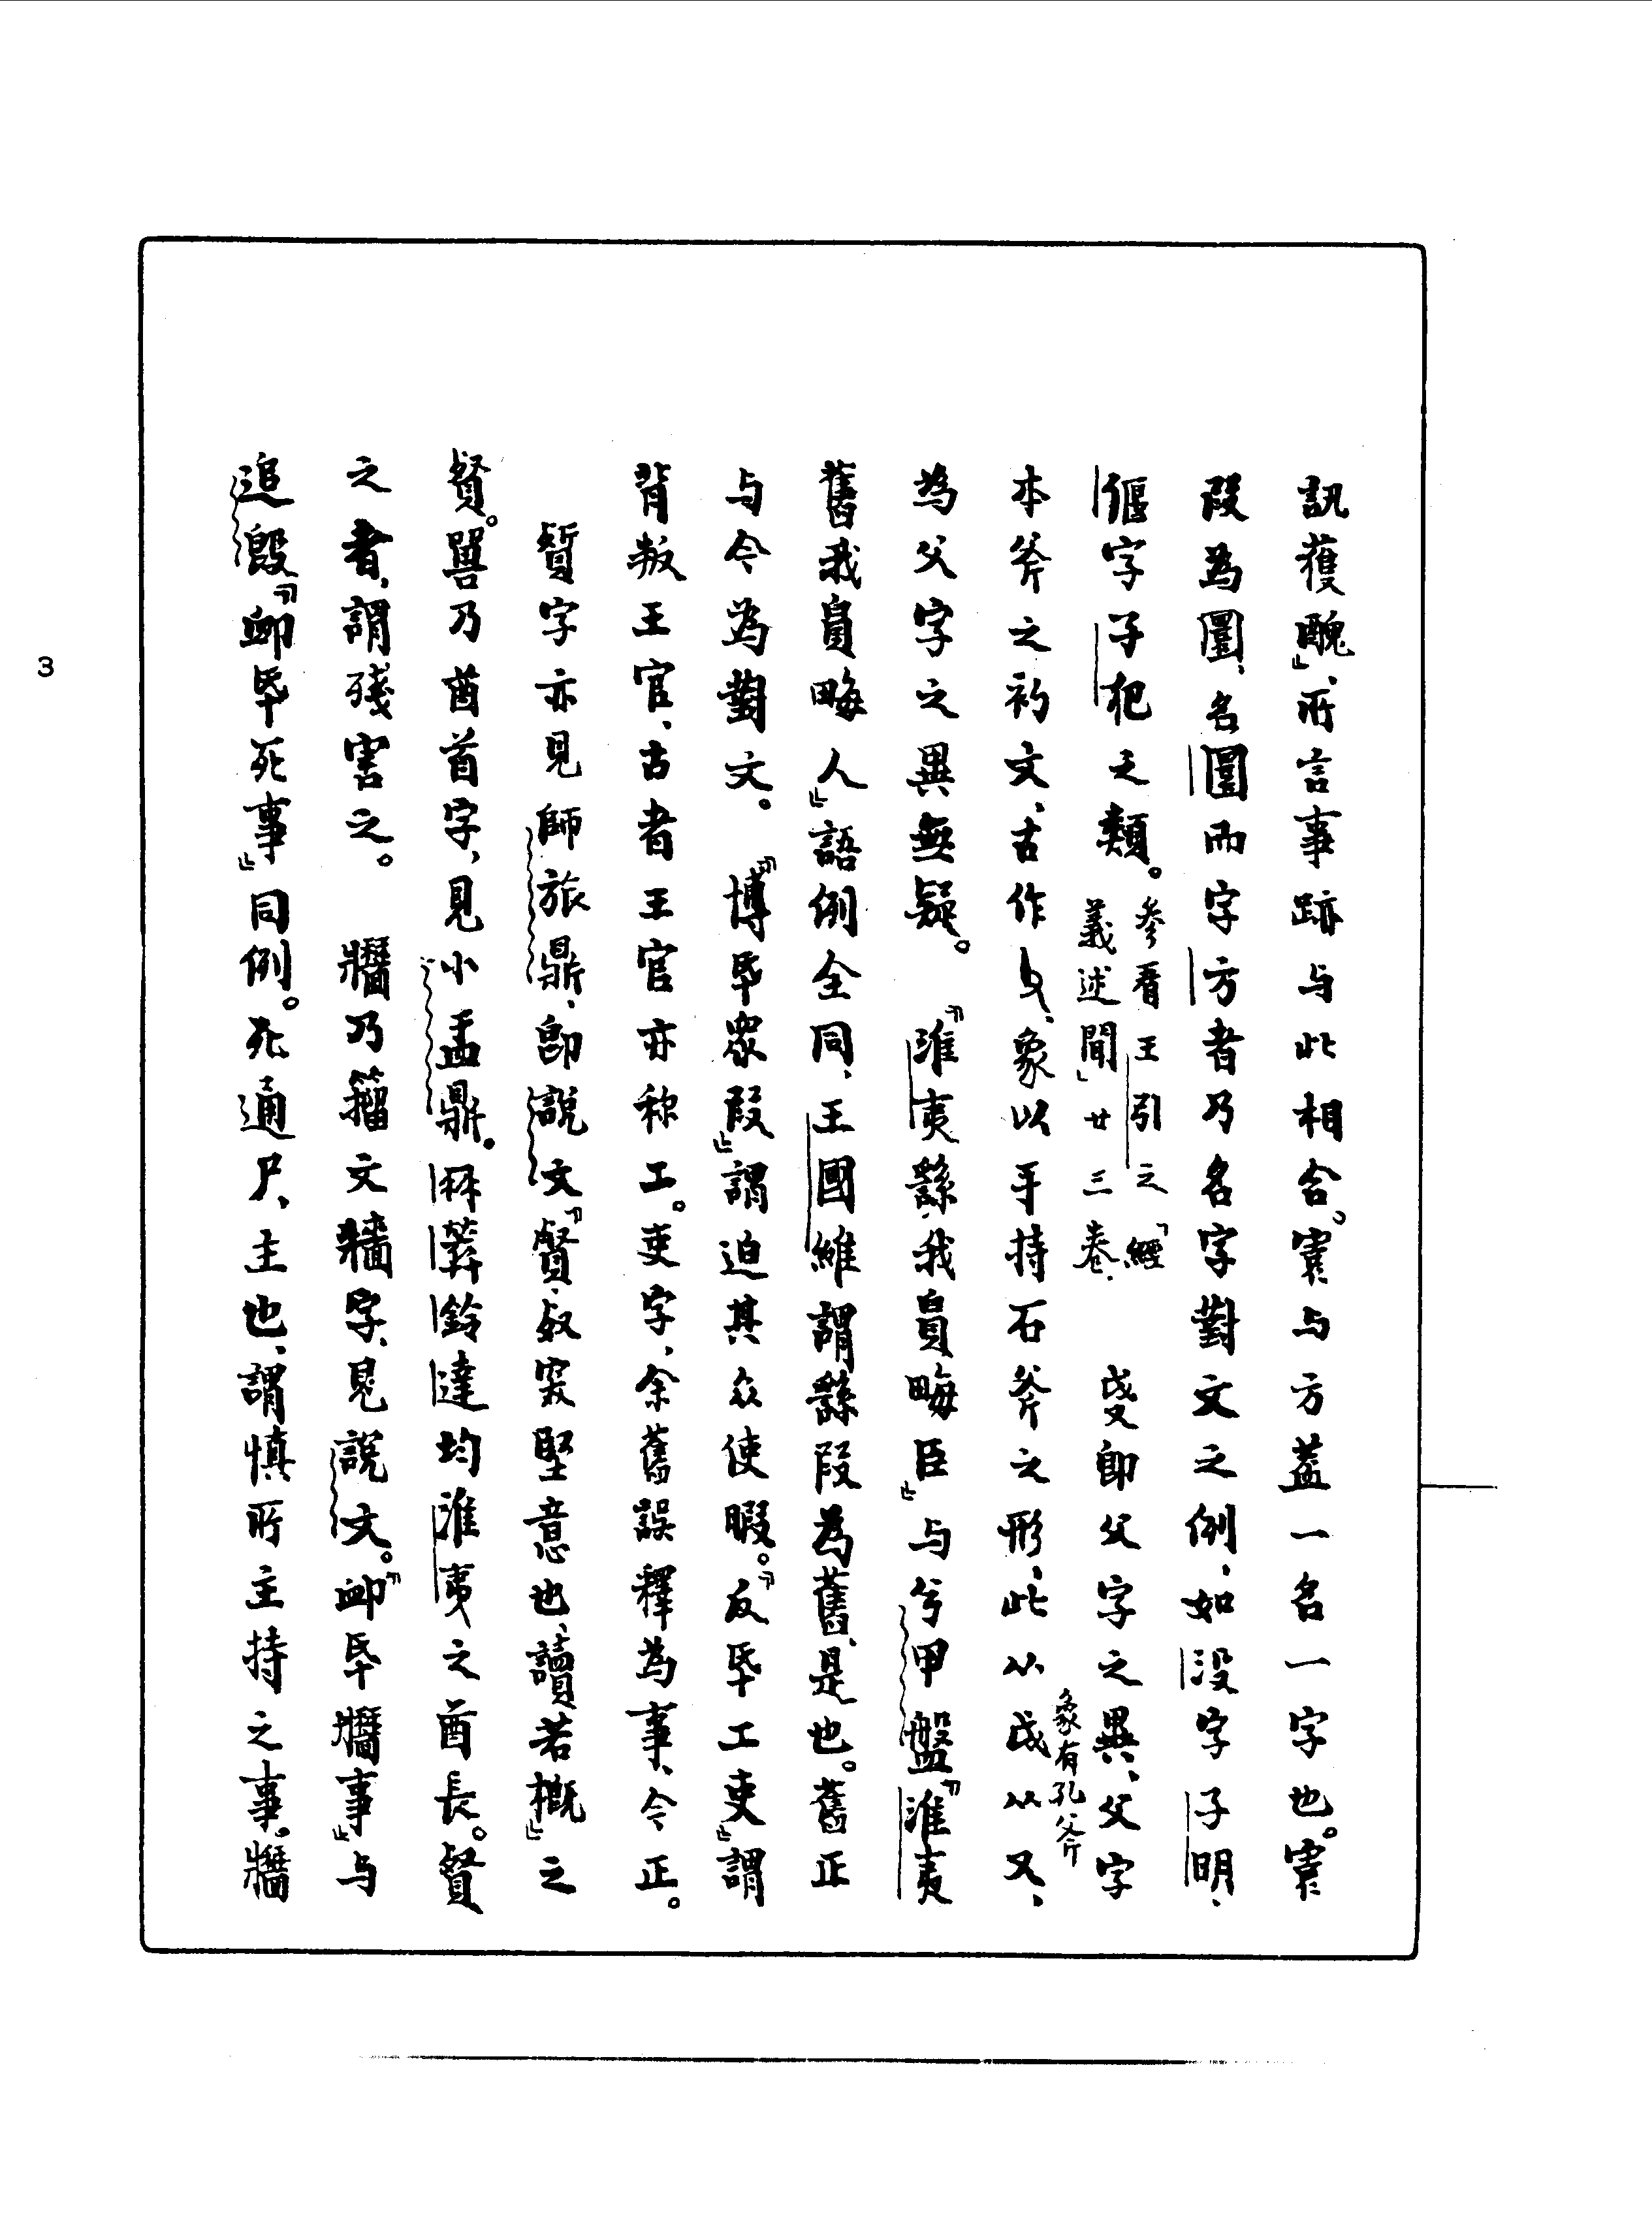 訊獲醜」、所言事跡与此相合。寰与方蓋一名一字也。寰
叚為圜、名圜而字方者乃名字對文之例、如没字子明、
偃字子犯之類。參看王引之「經義述聞」廿三卷、即父字之異、父字
本斧之初文、古作、象以手持石斧之形、此从戉象有孔父斧从又、
為父字之異無疑。『淮夷繇我員畮臣』与兮甲盤『淮夷
舊我員畮人』語例全同、王國維謂繇叚為舊、是也。舊正
与今為對文。『博氒眾叚』謂迫其众使暇。『反氒工吏』謂
背叛王官、古者王官亦称工。吏字、余舊誤釋為事、今正。
字亦見師旅鼎、即說文『叡、奴深堅意也、讀若概』之
乃酋首字、見小盂鼎。冉鈴達均淮夷之酋長。
之者、謂殘害之。牆乃籀文牆字、見說文。『卹氒事』与
追『卹氒死事』同例。死通尸、主也、謂慎所主持之事。
3